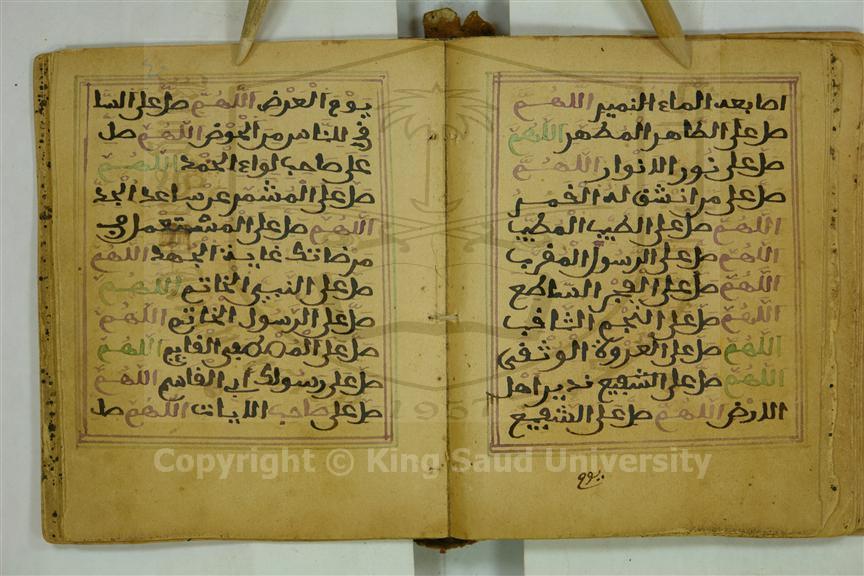 اصابعه الماء النمير اللهم
صل على الطاهر المطهر اللهم
صل على نور الانوار اللهم
صل على من انشق له القمر
اللهم صل على الطيب المطيب
اللهم صل على الرسول المقرب
اللهم صل على الفجر الساطع
اللهم صل على النجم الثاقب
اللهم صل على العروة الوثقى
اللهم صل على الشفيع نذير اهل
الارض اللهم صل على الشفيع
يوم
يوم العرض اللهم صل على السا
قي للناس من الحوض اللهم صل
على صاحب لواء الحمد اللهم
صل على المشمر عن ساعد الجد
اللهم صل على المستعمل في
مرضاتك غاية الجهد اللهم
صل على النبي الخاتم اللهم
صل على الرسول الخاتم اللهم
صل على المصطفى القايم اللهم
صل على رسولك ابي القاسم اللهم
صل على صاحب الايات اللهم صل
1957
Copyright © King Saud University